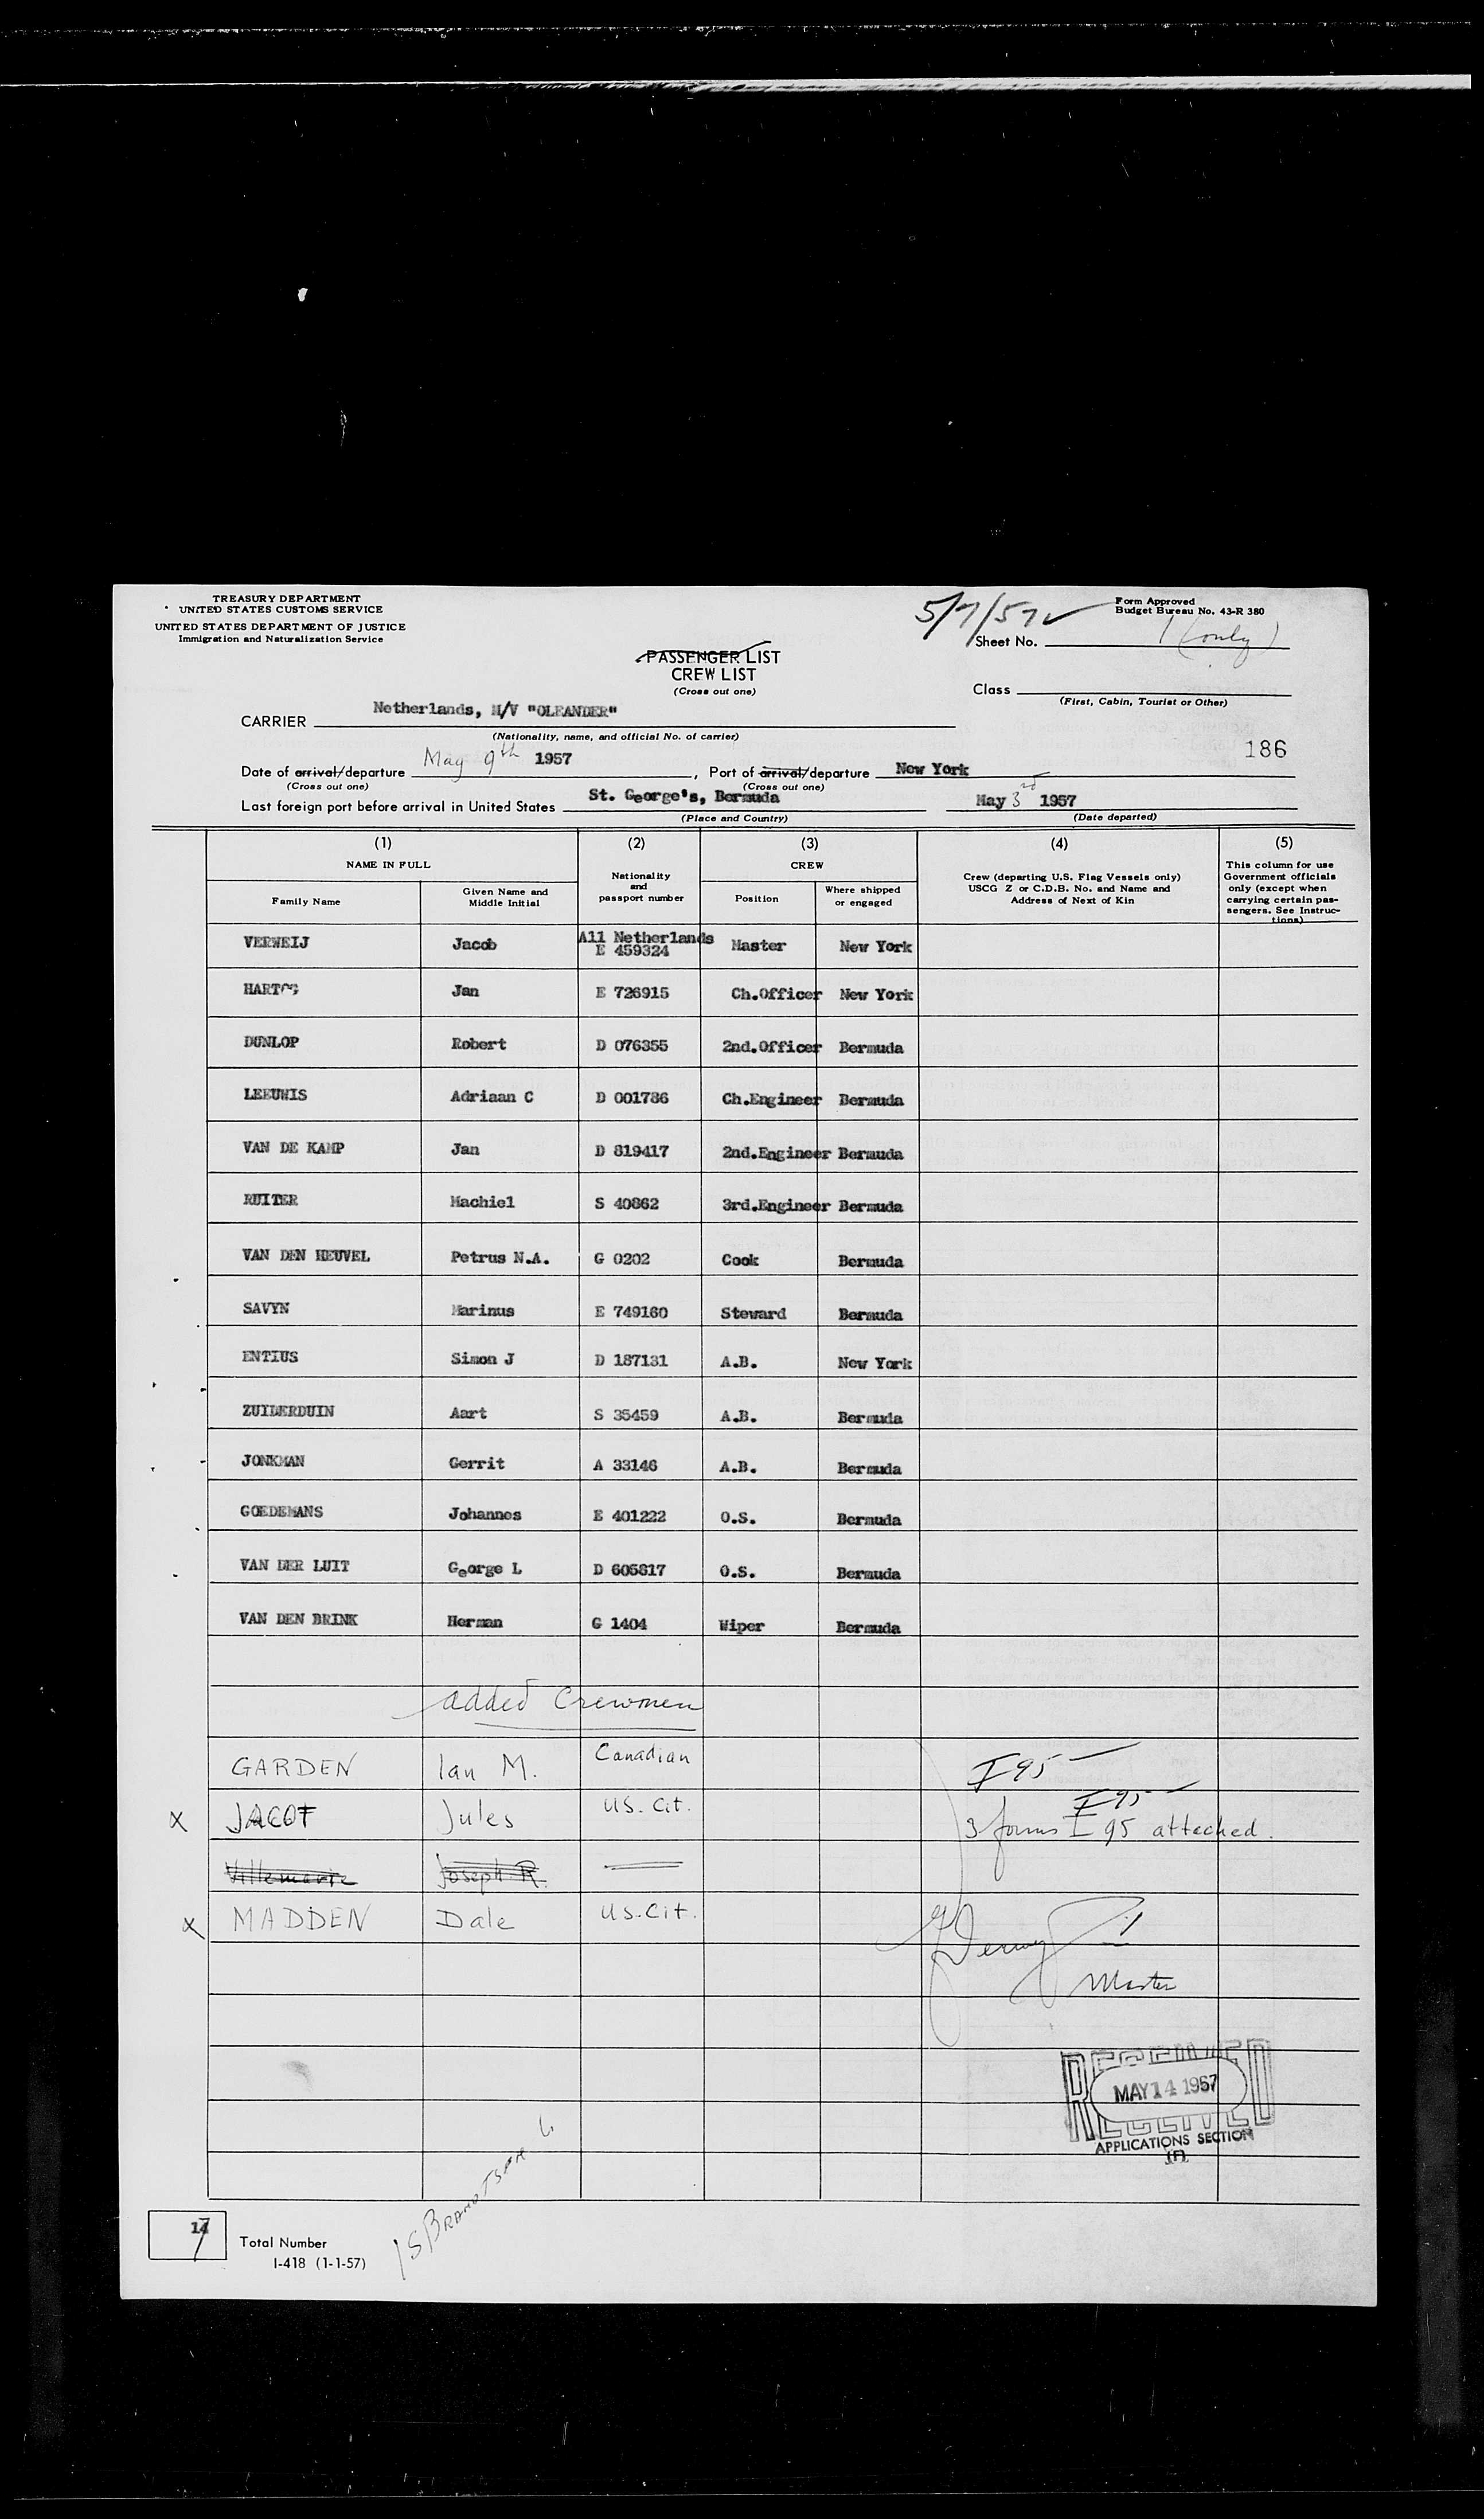 TREASURY DEPARTMENT
UNITED STATES CUSTOMS SERVICE
UNITED STATES DEPARTMENT OF JUSTICE
Immigration and Naturalization Service
5/7/57
Form Approved
Budget Bureau No. 43-R 380
Sheet No. 1 (only)
PASSENGER LIST
CREW LIST
(Cross out one)
Class
(First, Cabin, Tourist or Other)
CARRIER Netherlands, M/V "OLEANDER"
(Nationality, name, and official No. of carrier)
186
Date of arrival/departure May 9th 1957, Port of arrival/departure New York
(Cross out one) (Cross out one)
Last foreign port before arrival in United States St. George's, Bermuda May 3rd 1957
(Place and Country) (Date departed)
(1) (2) (3) (4) (5)
NAME IN FULL
Family Name
Given Name and Middle Initial
Nationality and passport number
CREW
Position
Where shipped or engaged
Crew (departing U.S. Flag Vessels only)
USCG Z or C.D.B. No. and Name and
Address of Next of Kin
This column for use
Government officials
only (except when
carrying certain pas-
sengers. See Instruc-
tions)
All Netherlands
VERWEIJ Jacob E 459324 Master New York
HARTOG Jan E 726915 Ch.Officer New York
DUNLOP Robert D 076355 2nd.Officer Bermuda
LEEUWIS Adriaan C D 001786 Ch.Engineer Bermuda
VAN DE KAMP Jan D 819417 2nd.Engineer Bermuda
RUITER Machiel S 40862 3rd.Engineer Bermuda
VAN DEN HEUVEL Petrus N.A. G 0202 Cook Bermuda
SAVYN Marinus E 749160 Steward Bermuda
ENTIUS Simon J D 187131 A.B. New York
ZUIDERDUIN Aart S 35459 A.B. Bermuda
JONKMAN Gerrit A 33146 A.B. Bermuda
GOEDEMANS Johannes E 401222 O.S. Bermuda
VAN DER LUIT George L D 605817 O.S. Bermuda
VAN DEN BRINK Herman G 1404 Wiper Bermuda
added Crewmen
GARDEN Ian M. Canadian I 95
I-95
x JACOT Jules US. Cit. 3 forms I 95 attached.
Villemarie Joseph R.
x MADDEN Dale US. Cit.
Master
RECEIVED
MAY 14 1957
RECEIVED
APPLICATIONS SECTION
(F)
17
Total Number
I-418 (1-1-57)